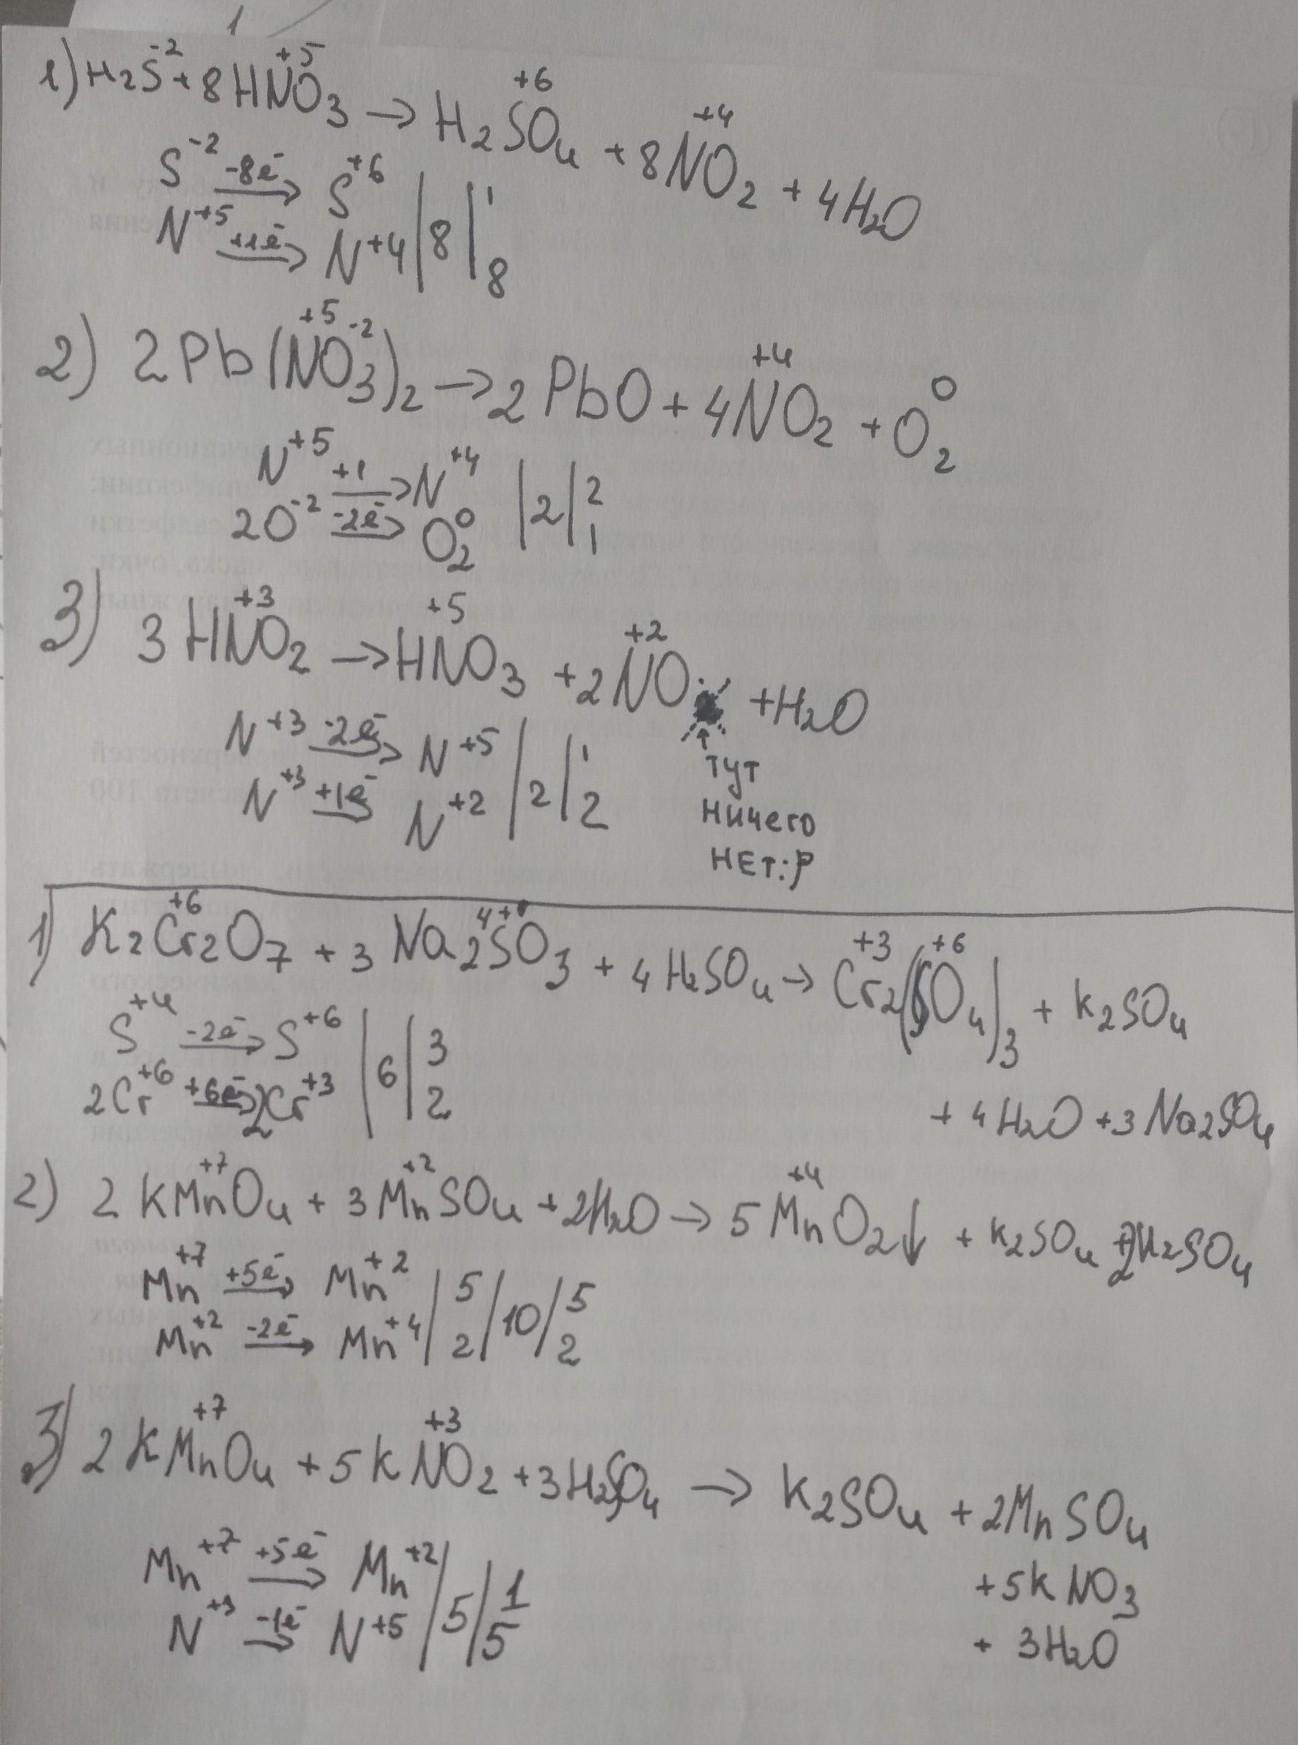 1
1) H₂S⁻² + 8HN⁺⁵O₃ → H₂S⁺⁶O₄ + 8N⁺⁴O₂ + 4H₂O
S⁻² -8e̅→ S⁺⁶ | 8 | 1
N⁺⁵ +1e̅→ N⁺⁴ | 8 | 8
2) 2Pb(N⁺⁵O₃⁻²)₂ → 2PbO + 4N⁺⁴O₂ + O₂⁰
N⁺⁵ +1→ N⁺⁴ | 2 | 2
2O⁻² -2e̅→ O₂⁰ | 2 | 1
3) 3HN⁺³O₂ → HN⁺⁵O₃ + 2N⁺²O + H₂O
N⁺³ -2e̅→ N⁺⁵ | 2 | 1
N⁺³ +1e̅→ N⁺² | 2 | 2
↑
тут
ничего
нет:P
1) K₂Cr₂⁺⁶O₇ + 3Na₂S⁴⁺O₃ + 4H₂SO₄ → Cr₂⁺³(S⁺⁶O₄)₃ + K₂SO₄
+ 4H₂O + 3Na₂SO₄
S⁺⁴ -2e̅→ S⁺⁶ | 6 | 3
2Cr⁺⁶ +6e̅→ 2Cr⁺³ | 6 | 2
2) 2KMn⁺⁷O₄ + 3Mn⁺²SO₄ + 2H₂O → 5Mn⁺⁴O₂↓ + K₂SO₄ + 2H₂SO₄
Mn⁺⁷ +5e̅→ Mn⁺² | 5 | 10 | 5
Mn⁺² -2e̅→ Mn⁺⁴ | 2 | 10 | 2
3) 2KMn⁺⁷O₄ + 5KN⁺³O₂ + 3H₂SO₄ → K₂SO₄ + 2MnSO₄
+ 5KNO₃
+ 3H₂O
Mn⁺⁷ +5e̅→ Mn⁺² | 5 | 1
N⁺³ -1e̅→ N⁺⁵ | 5 | 5